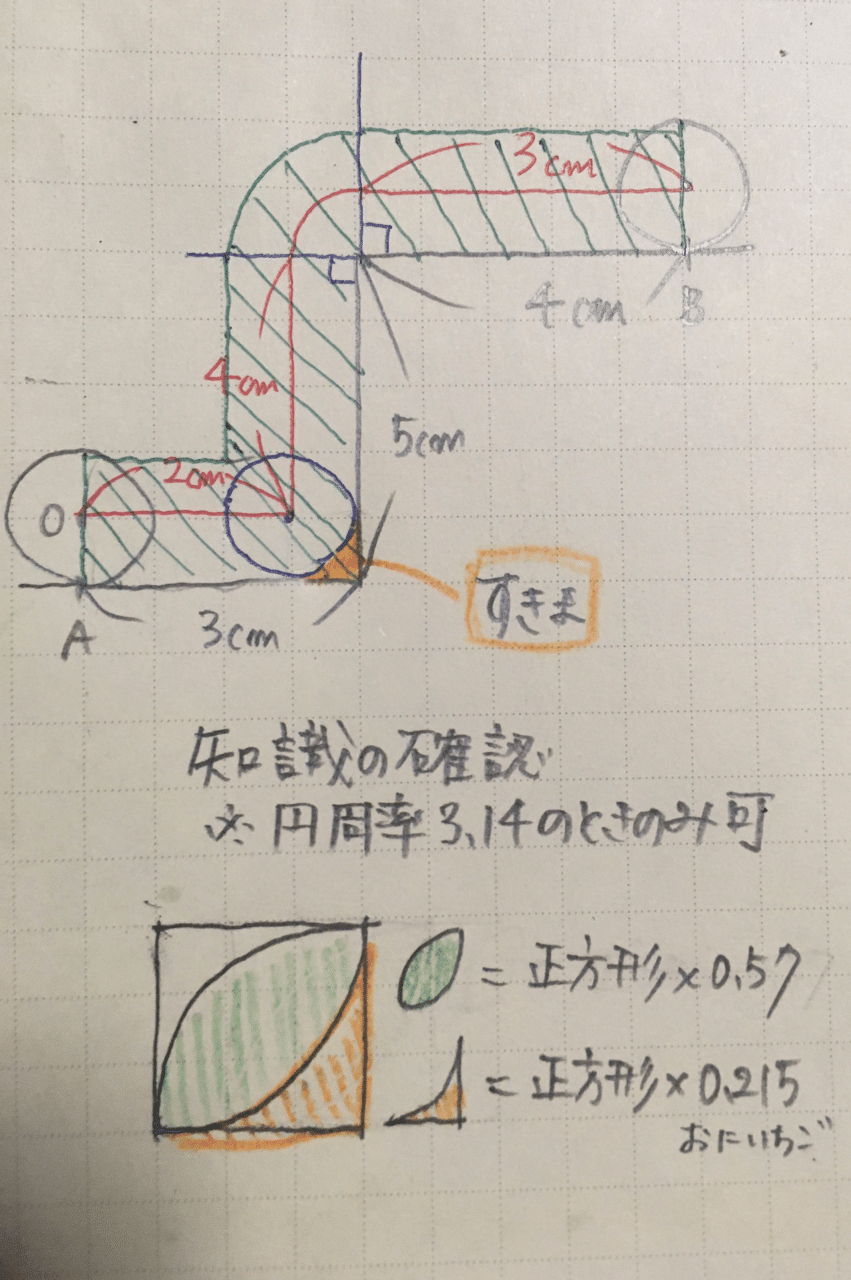 3cm
4cm
B
4cm
5cm
2cm
O
すきま
A
3cm
知識の確認
※円周率3.14のときのみ可
= 正方形×0.57
= 正方形×0.215
おにいちご